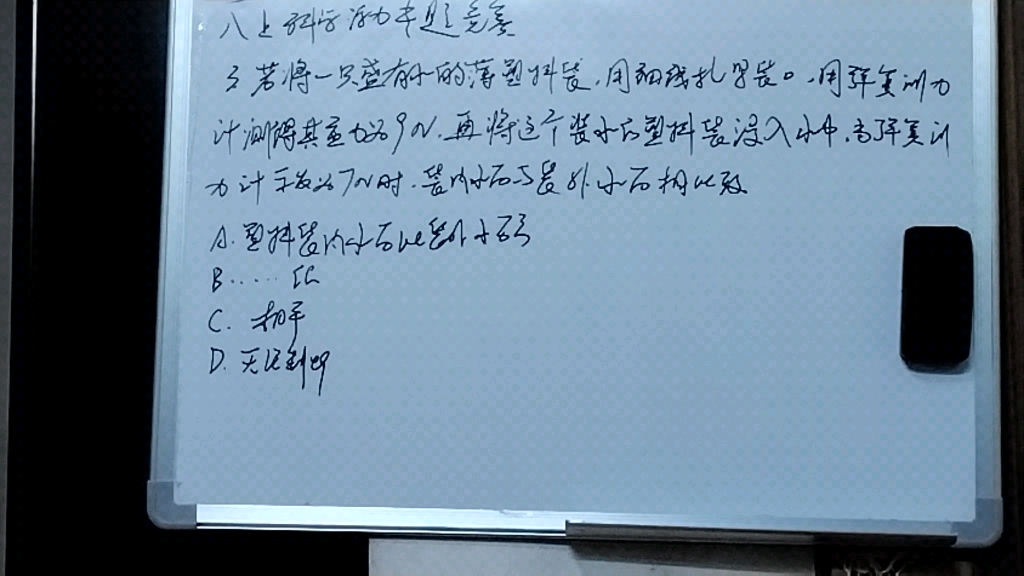 八上科学浮力专题竞赛
3 若将一只盛有水的薄塑料袋，用细线扎紧袋口，用弹簧测力
计测得其重力为9N，再将这个装水的塑料袋浸入水中，当弹簧测
力计示数为7N时，袋内水面与袋外水面相比较
A. 塑料袋内水面比袋外水面高
B. ...... 低
C. 相平
D. 无法判断